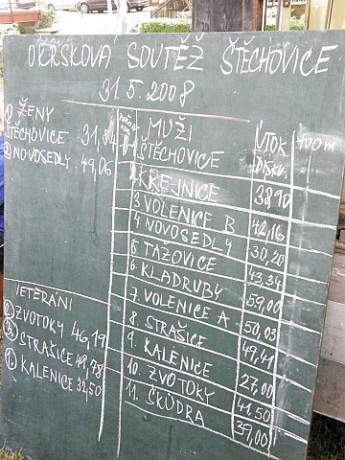 OKRSKOVÁ SOUTĚŽ ŠTĚCHOVICE
31.5.2008
① ŽENY
ŠTĚCHOVICE 31,
② NOVOSEDLY 49,06
MUŽI
ÚTOK
400m
1. ŠTĚCHOVICE DISKV.
2. KREJNICE 38,90
3 VOLENICE B 42,16
4. NOVOSEDLY 30,20
5. TAŽOVICE 43,34
6. KLADRUBY 59,00
7. VOLENICE A 50,03
8. STRAŠICE 49,41
9. KALENICE 27,00
10. ZVOTOKY 41.50
11. ŠKŮDRA 39,00
VETERÁNI
② ZVOTOKY 46,19
③ STRAŠICE 49,78
① KALENICE 32,50